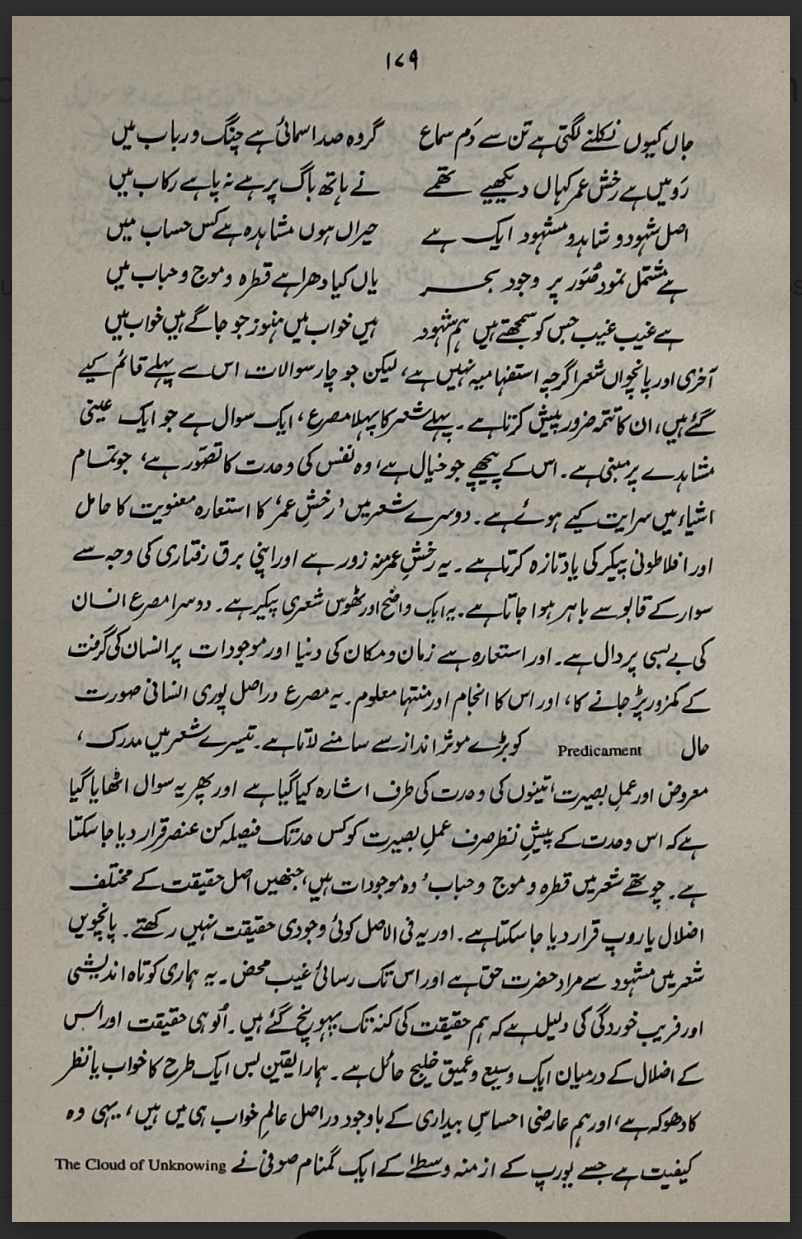 ۱۷۹
جاں کیوں نکلنے لگتی ہے تن سے دَم سماع گروہ صدا سمائی ہے چنگ و رباب میں
رَو میں ہے رخشِ عمر کہاں دیکھیے تھمے نے ہاتھ باگ پر ہے نہ پا ہے رکاب میں
اصل شہود و شاہد و مشہود ایک ہے حیراں ہوں مشاہدہ ہے کس حساب میں
ہے مشتمل نمودِ صُوَر پر وجودِ بحر یاں کیا دھرا ہے قطرہ و موج و حباب میں
ہے غیب غیب جس کو سمجھتے ہیں ہم شہود ہیں خواب میں ہنوز جو جاگے ہیں خواب میں
آخری اور پانچواں شعر اگرچہ استفہامیہ نہیں ہے، لیکن جو چار سوالات اس سے پہلے قائم کیے
گئے ہیں، ان کا تتمہ ضرور پیش کرتا ہے۔ پہلے شعر کا پہلا مصرع، ایک سوال ہے جو ایک عینی
مشاہدے پر مبنی ہے۔ اس کے پیچھے جو خیال ہے، وہ نفس کی وحدت کا تصوّر ہے، جو تمام
اشیاء میں سرایت کیے ہوئے ہے۔ دوسرے شعر میں 'رخشِ عمر' کا استعارہ معنویت کا حامل
اور افلاطونی پیکر کی یاد تازہ کرتا ہے۔ یہ رخشِ عمر منہ زور ہے اور اپنی برق رفتاری کی وجہ سے
سوار کے قابو سے باہر ہوا جاتا ہے۔ یہ ایک واضح اور ٹھوس شعری پیکر ہے۔ دوسرا مصرع انسان
کی بے بسی پر دال ہے۔ اور استعارہ ہے زمان و مکان کی دنیا اور موجودات پر انسان کی گرفت
کے کمزور پڑ جانے کا، اور اس کا انجام اور منتہا معلوم۔ یہ مصرع دراصل پوری انسانی صورت
حال Predicament کو بڑے موثر انداز سے سامنے لاتا ہے۔ تیسرے شعر میں مدرک،
معروض اور عملِ بصیرت تینوں کی وحدت کی طرف اشارہ کیا گیا ہے اور پھر یہ سوال اٹھایا گیا
ہے کہ اس وحدت کے پیشِ نظر صرف عملِ بصیرت کو کس حد تک فیصلہ کن عنصر قرار دیا جا سکتا
ہے۔ چوتھے شعر میں قطرہ و موج و حباب، وہ موجودات ہیں، جنھیں اصل حقیقت کے مختلف
اضلال یا روپ قرار دیا جا سکتا ہے۔ اور یہ فی الاصل کوئی وجودی حقیقت نہیں رکھتے۔ پانچویں
شعر میں مشہود سے مراد حضرت حق ہے اور اس تک رسائی غیب محض۔ یہ ہماری کوتاہ اندیشی
اور فریب خوردگی کی دلیل ہے کہ ہم حقیقت کی کنہ تک پہونچ گئے ہیں۔ اُلوہی حقیقت اور اس
کے اضلال کے درمیان ایک وسیع و عمیق خلیج حائل ہے۔ ہمارا یقین بس ایک طرح کا خواب یا نظر
کا دھوکہ ہے، اور ہم عارضی احساسِ بیداری کے باوجود دراصل عالمِ خواب ہی میں ہیں، یہی وہ
کیفیت ہے جسے یورپ کے ازمنہ وسطےٰ کے ایک گمنام صوفی نے The Cloud of Unknowing